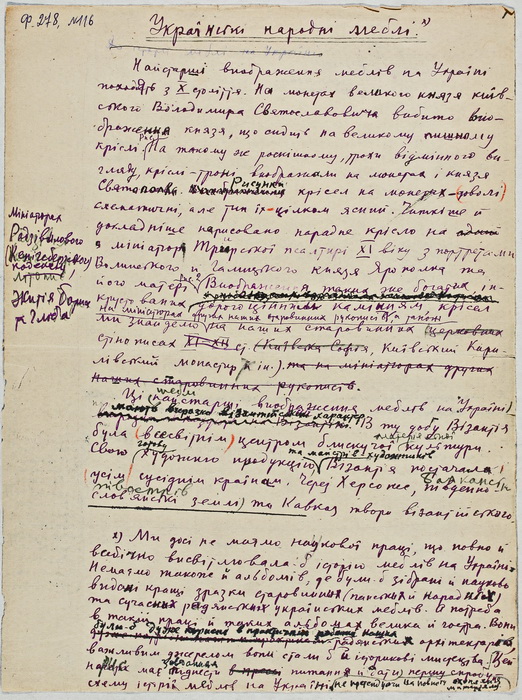 Ф. 278, №116
Українські народні меблі. х)
Найстарші зображення меблів на Україні
походять з X століття. На монетах великого князя київ-
ського Володимира Святославовича вибито зоб-
раження князя, що сидить на великому пишному
кріслі. На такому ж розкішному, трохи відмінного ви-
гляду, кріслі-троні зображали на монетах і князя
Святополка. Рисунки крісел на монетах – доволі
схематичні, але тип їх цілком ясний. Чіткіше й
докладніше нарисовано парадне крісло на
з мініатюр Трірської псалтирі XI віку з портретами
Волинського й Галицького князя Ярополка та
його матері. Зображення таких же багатих, ін-
крустованих дорогоцінним камінням крісел
на мініатюрах других наших старовинних рукописів, а також
ми знаходимо на наших старовинних церковних
стінописах XI-XII ст. (Київська Софія, Київський Кири-
лівський монастир й ін.) та на мініатюрах других
наших старовинних рукописів.
Мініатюрах
Радзівілового
Кенігсберзького
кодексу
літопис
Житія Бориса
та Гліба
Ці найстарші зображення меблів на Україні
мають виразно візантійський характер. В ту добу Візантія
була всесвітнім центром блискучої матеріальної культури.
Свою художню продукцію та майстрів художників Візантія постачала
усім сусіднім країнам. Через Херсонес, південно
слов'янські землі та Кавказ твори візантійського
х) Ми досі не маємо наукової праці, що повно й
всебічно висвітлювала б історію меблів на Україні.
Немаємо також й альбомів, де були б зібрані й науково
видані кращі зразки старовинних (панських й народніх)
та сучасних радянських українських меблів. А потреба
в такій праці й таких альбомах велика й гостра. Вони
були б дуже корисні в практичній роботі наших
радянських архітекторів
важливим джерелом вони стали б й історикам мистецтва. Цей
нарис має піднести питання й дати першу спробу
схему історії меблів на Україні